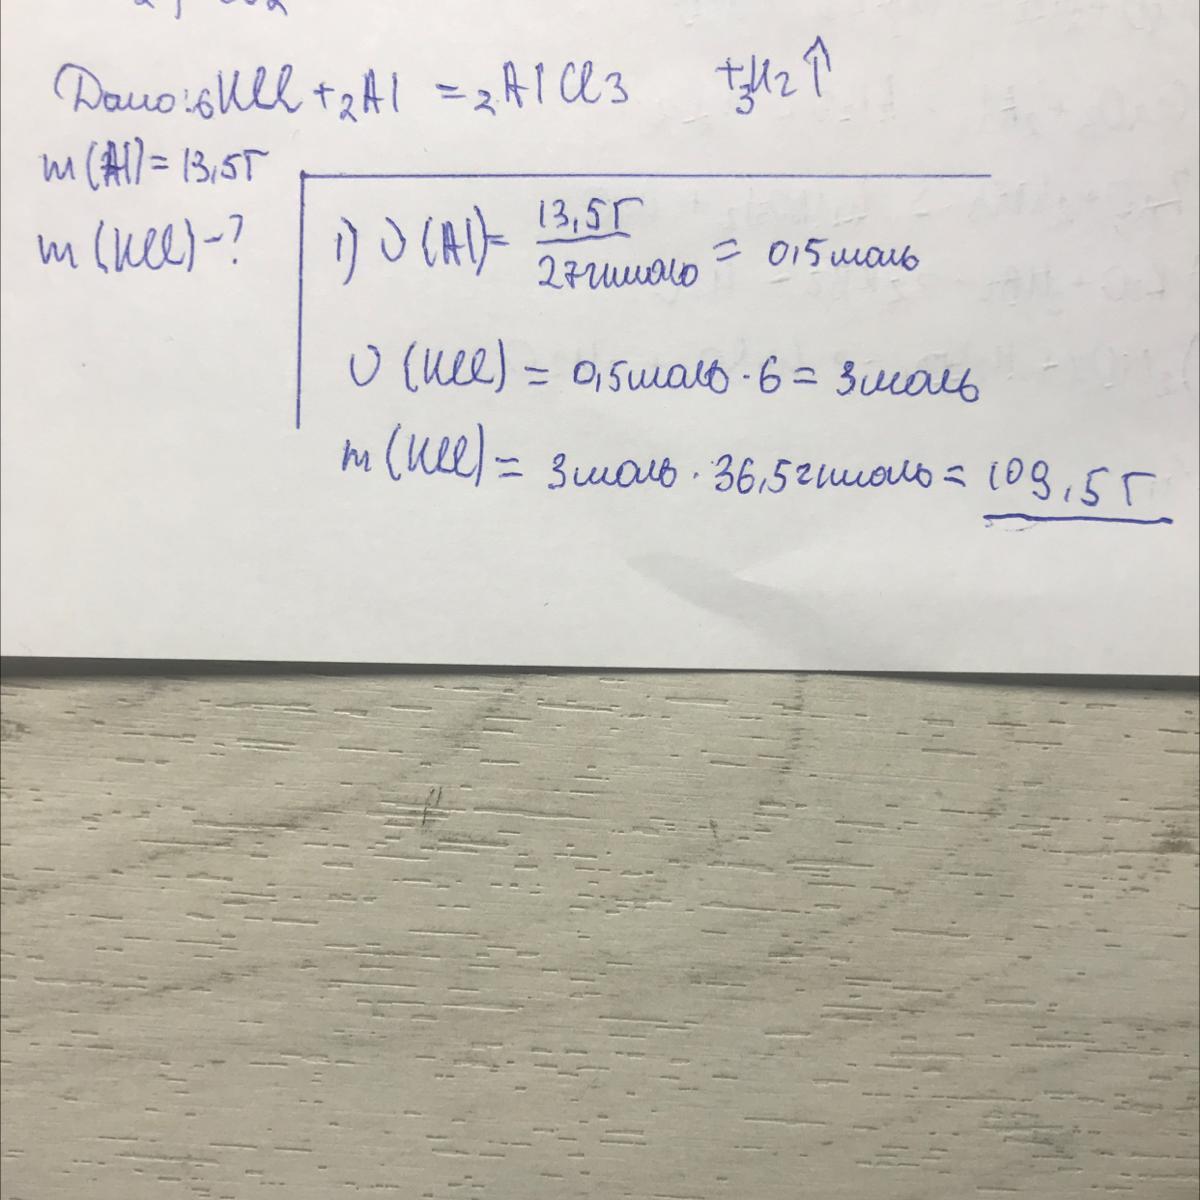 Дано: 6HCl + 2Al = 2AlCl3 + 3H2↑
m(Al) = 13,5г
m(HCl) - ?
1) υ(Al) = 13,5г / 27г/моль = 0,5моль
υ(HCl) = 0,5моль · 6 = 3моль
m(HCl) = 3моль · 36,5г/моль = 109,5г